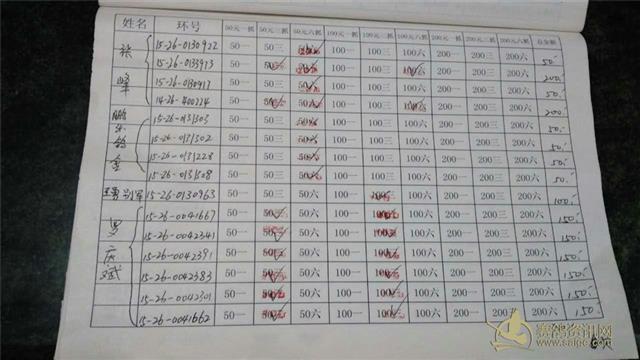 姓名 环号 50元一抓 50元三抓 50元六抓 100元一抓 100元三抓 100元六抓 200元一抓 200元三抓 200元六抓 总金额
15-26-0130922 50一 50三 50六 100一 100三 100六 200一 200三 200六 50.-
张 15-26-0133913 50一 50三 50六 100一 100三 100六 200一 200三 200六 200.-
峰 15-26-0130917 50一 50三 50六 100一 100三 100六 200一 200三 200六 50.-
14-26-400224 50一 50三 50六 100一 100三 100六 200一 200三 200六 200.-
15-26-0131303 50一 50三 50六 100一 100三 100六 200一 200三 200六 50.-
15-26-0131302 50一 50三 50六 100一 100三 100六 200一 200三 200六 50.-
15-26-0131228 50一 50三 50六 100一 100三 100六 200一 200三 200六 50.-
15-26-0131308 50一 50三 50六 100一 100三 100六 200一 200三 200六 50.-
15-26-0130963 50一 50三 50六 100一 100三 100六 200一 200三 200六 100.-
罗 15-26-0041667 50一 50三 50六 100一 100三 100六 200一 200三 200六 150.-
15-26-0042341 50一 50三 50六 100一 100三 100六 200一 200三 200六 150.-
庆 15-26-0042391 50一 50三 50六 100一 100三 100六 200一 200三 200六 150.-
斌 15-26-0042383 50一 50三 50六 100一 100三 100六 200一 200三 200六 150.-
15-26-0042301 50一 50三 50六 100一 100三 100六 200一 200三 200六 150.-
15-26-0041662 50一 50三 50六 100一 100三 100六 200一 200三 200六 150.-
赛鸽资讯网
www.saige.com